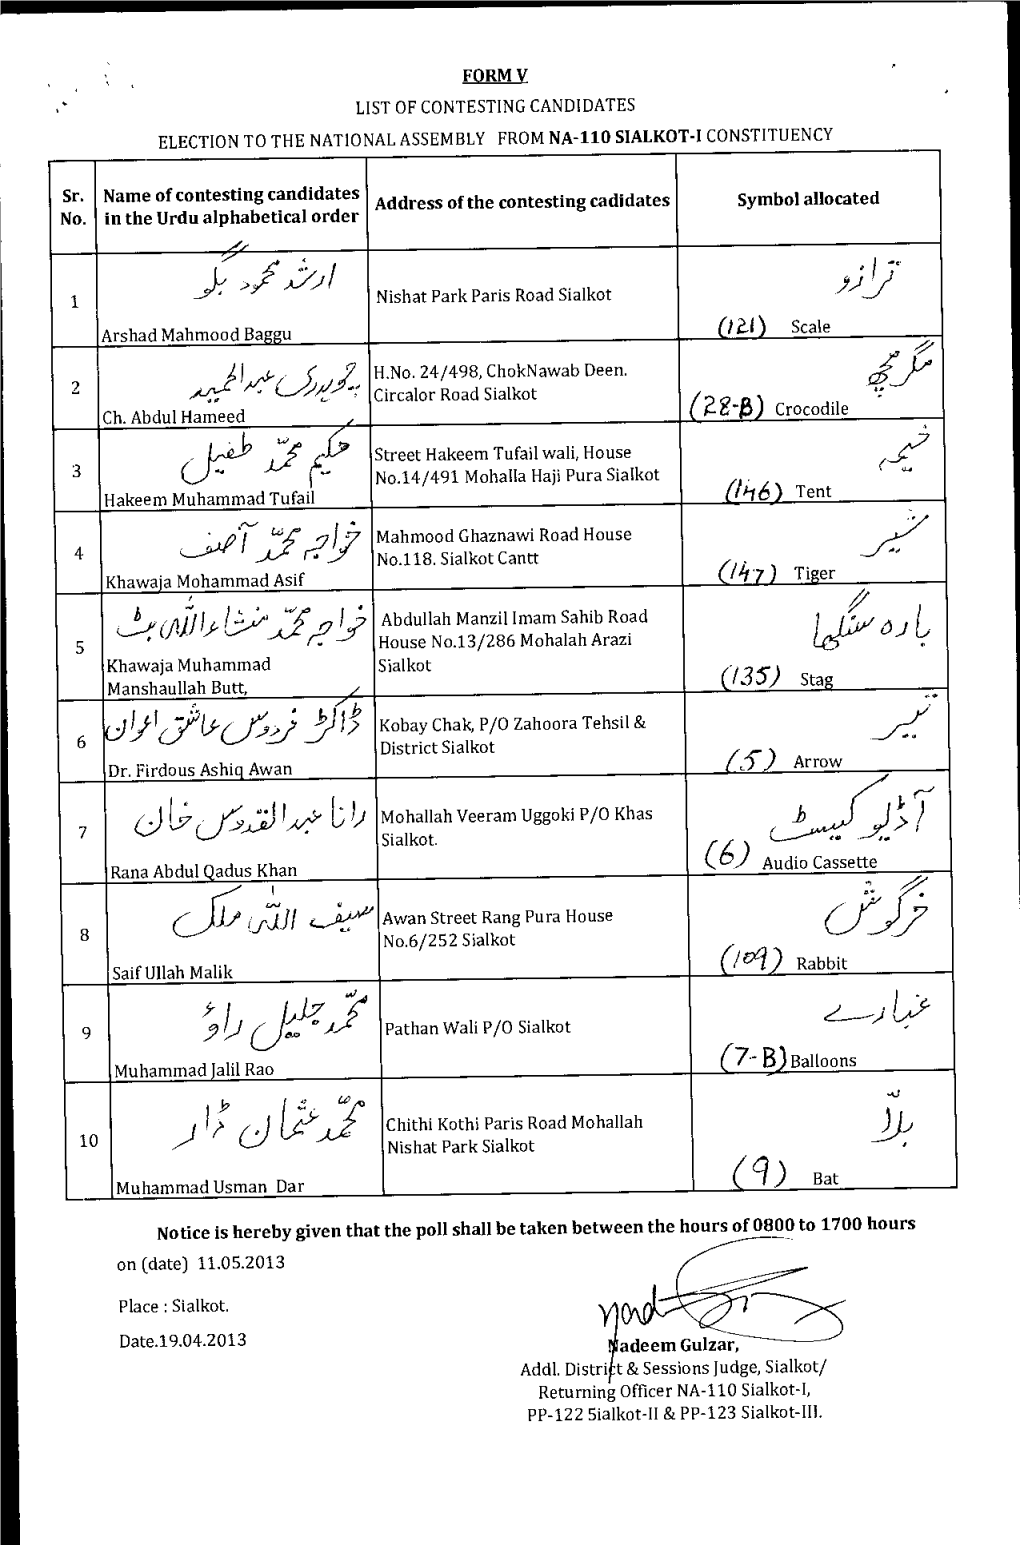 FORM V
LIST OF CONTESTING CANDIDATES
ELECTION TO THE NATIONAL ASSEMBLY FROM NA-110 SIALKOT-I CONSTITUENCY
Sr. No.
Name of contesting candidates in the Urdu alphabetical order
Address of the contesting cadidates
Symbol allocated
1
ارشد محمود بگو
Arshad Mahmood Baggu
Nishat Park Paris Road Sialkot
ترازو
(121) Scale
2
چوہدری عبدالحمید
Ch. Abdul Hameed
H.No. 24/498, ChokNawab Deen.
Circalor Road Sialkot
مگرمچھ
(28-B) Crocodile
3
حکیم محمد طفیل
Hakeem Muhammad Tufail
Street Hakeem Tufail wali, House
No.14/491 Mohalla Haji Pura Sialkot
خیمہ
(146) Tent
4
خواجہ محمد آصف
Khawaja Mohammad Asif
Mahmood Ghaznawi Road House
No.118. Sialkot Cantt
شیر
(147) Tiger
5
خواجہ محمد منشاءاللہ بٹ
Khawaja Muhammad
Manshaullah Butt,
Abdullah Manzil Imam Sahib Road
House No.13/286 Mohalah Arazi
Sialkot
بارہ سنگھا
(135) Stag
6
ڈاکٹر فردوس عاشق اعوان
Dr. Firdous Ashiq Awan
Kobay Chak, P/O Zahoora Tehsil &
District Sialkot
تیر
(5) Arrow
7
رانا عبدالقدوس خان
Rana Abdul Qadus Khan
Mohallah Veeram Uggoki P/O Khas
Sialkot.
آڈیو کیسٹ
(6) Audio Cassette
8
سیف اللہ ملک
Saif Ullah Malik
Awan Street Rang Pura House
No.6/252 Sialkot
خرگوش
(109) Rabbit
9
محمد جلیل راؤ
Muhammad Jalil Rao
Pathan Wali P/O Sialkot
غبارے
(7-B) Balloons
10
محمد عثمان ڈار
Muhammad Usman Dar
Chithi Kothi Paris Road Mohallah
Nishat Park Sialkot
بلا
(9) Bat
Notice is hereby given that the poll shall be taken between the hours of 0800 to 1700 hours
on (date) 11.05.2013
Place : Sialkot.
Date.19.04.2013
Nadeem Gulzar,
Addl. District & Sessions Judge, Sialkot/
Returning Officer NA-110 Sialkot-I,
PP-122 Sialkot-II & PP-123 Sialkot-III.